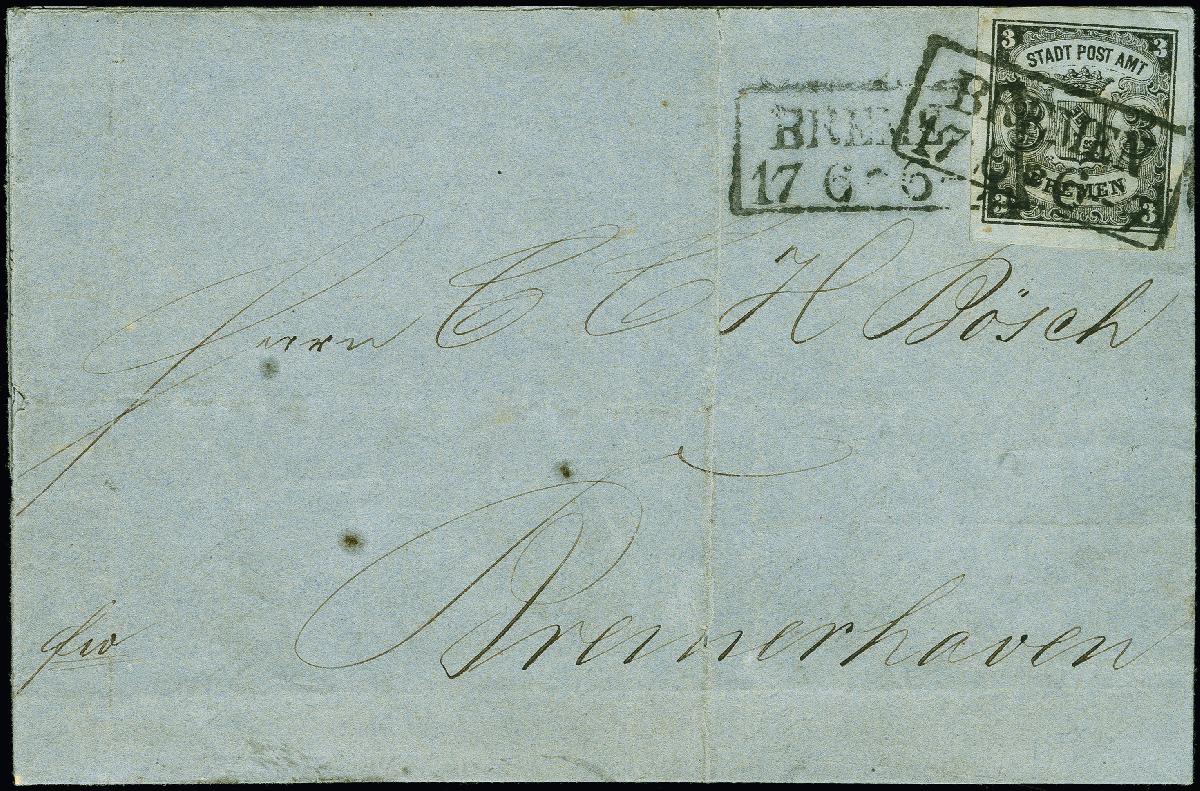 3 3
STADT POST AMT
BREMEN
3 3
BREMEN
17 6
BREMEN
17 6
Herrn C C H Bösch
Bremerhaven
fro